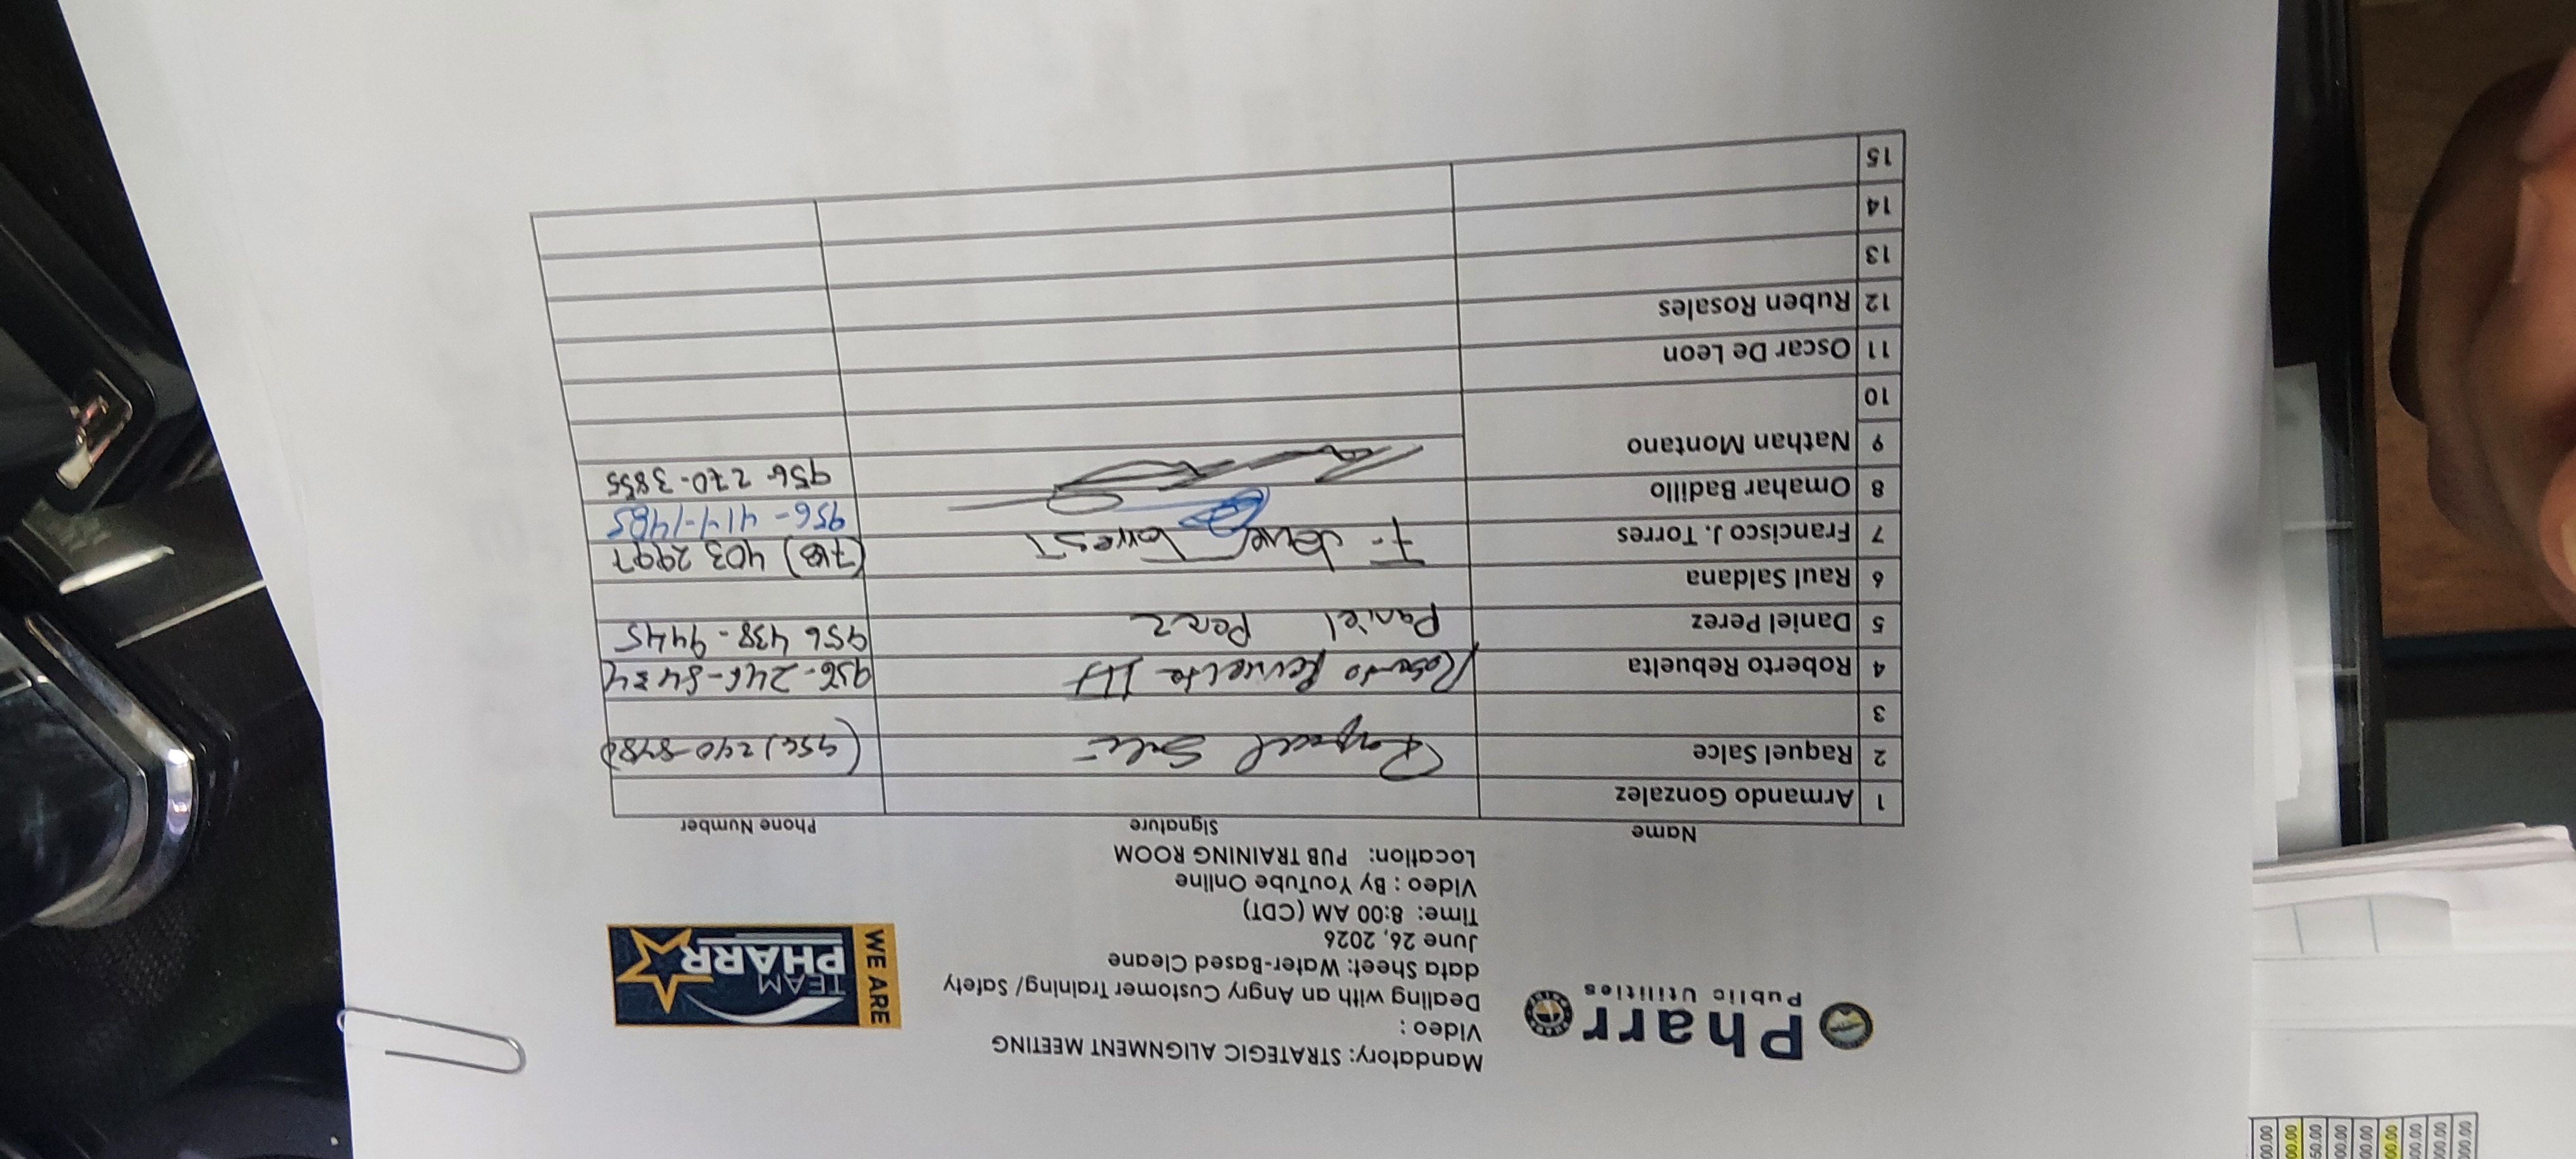 Pharr
Public Utilities
Mandatory: STRATEGIC ALIGNMENT MEETING
Video :
Dealing with an Angry Customer Training/ Safety
data Sheet: Water-Based Cleane
June 26, 2026
Time: 8:00 AM (CDT)
Video : By YouTube Online
Location: PUB TRAINING ROOM
WE ARE
TEAM
PHARR
Name Signature Phone Number
1 Armando Gonzalez
2 Raquel Salce
3
4 Roberto Rebuelta Roberto Revuelta III
5 Daniel Perez Daniel Perez 956 438-9445
6 Raul Saldana
7 Francisco J. Torres F. Javier Torres 403 2997
8 Omahar Badillo
9 Nathan Montano 956-270-3855
10
11 Oscar De Leon
12 Ruben Rosales
13
14
15